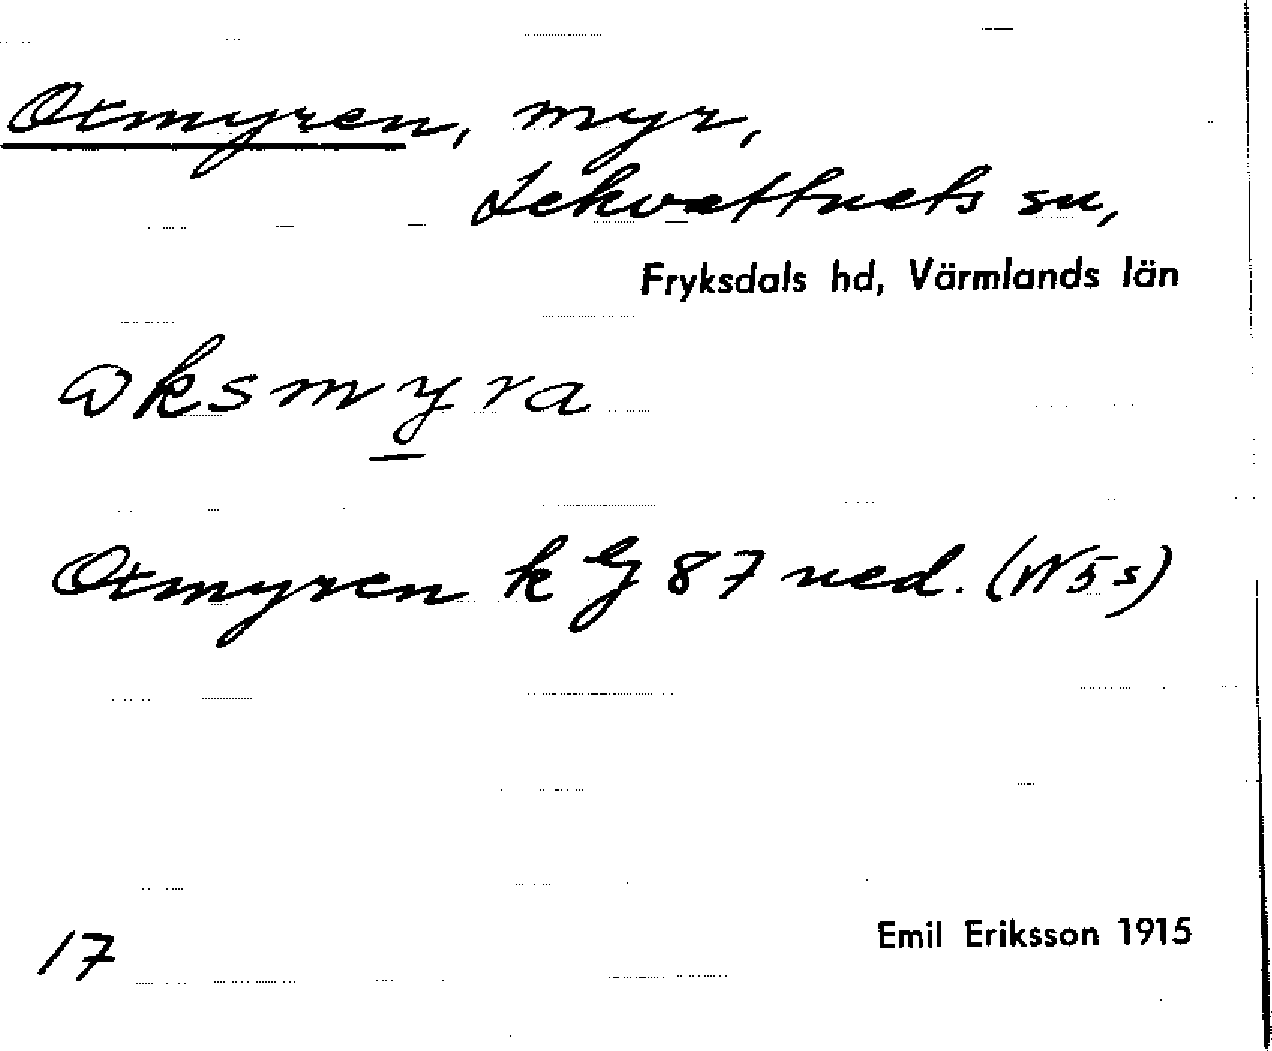 Oxmyren, myr,
Lekvattnets sn,
Fryksdals hd, Värmlands län
ωksmyra
Oxmyren k G 87 ned. (N5s)
17
Emil Eriksson 1915